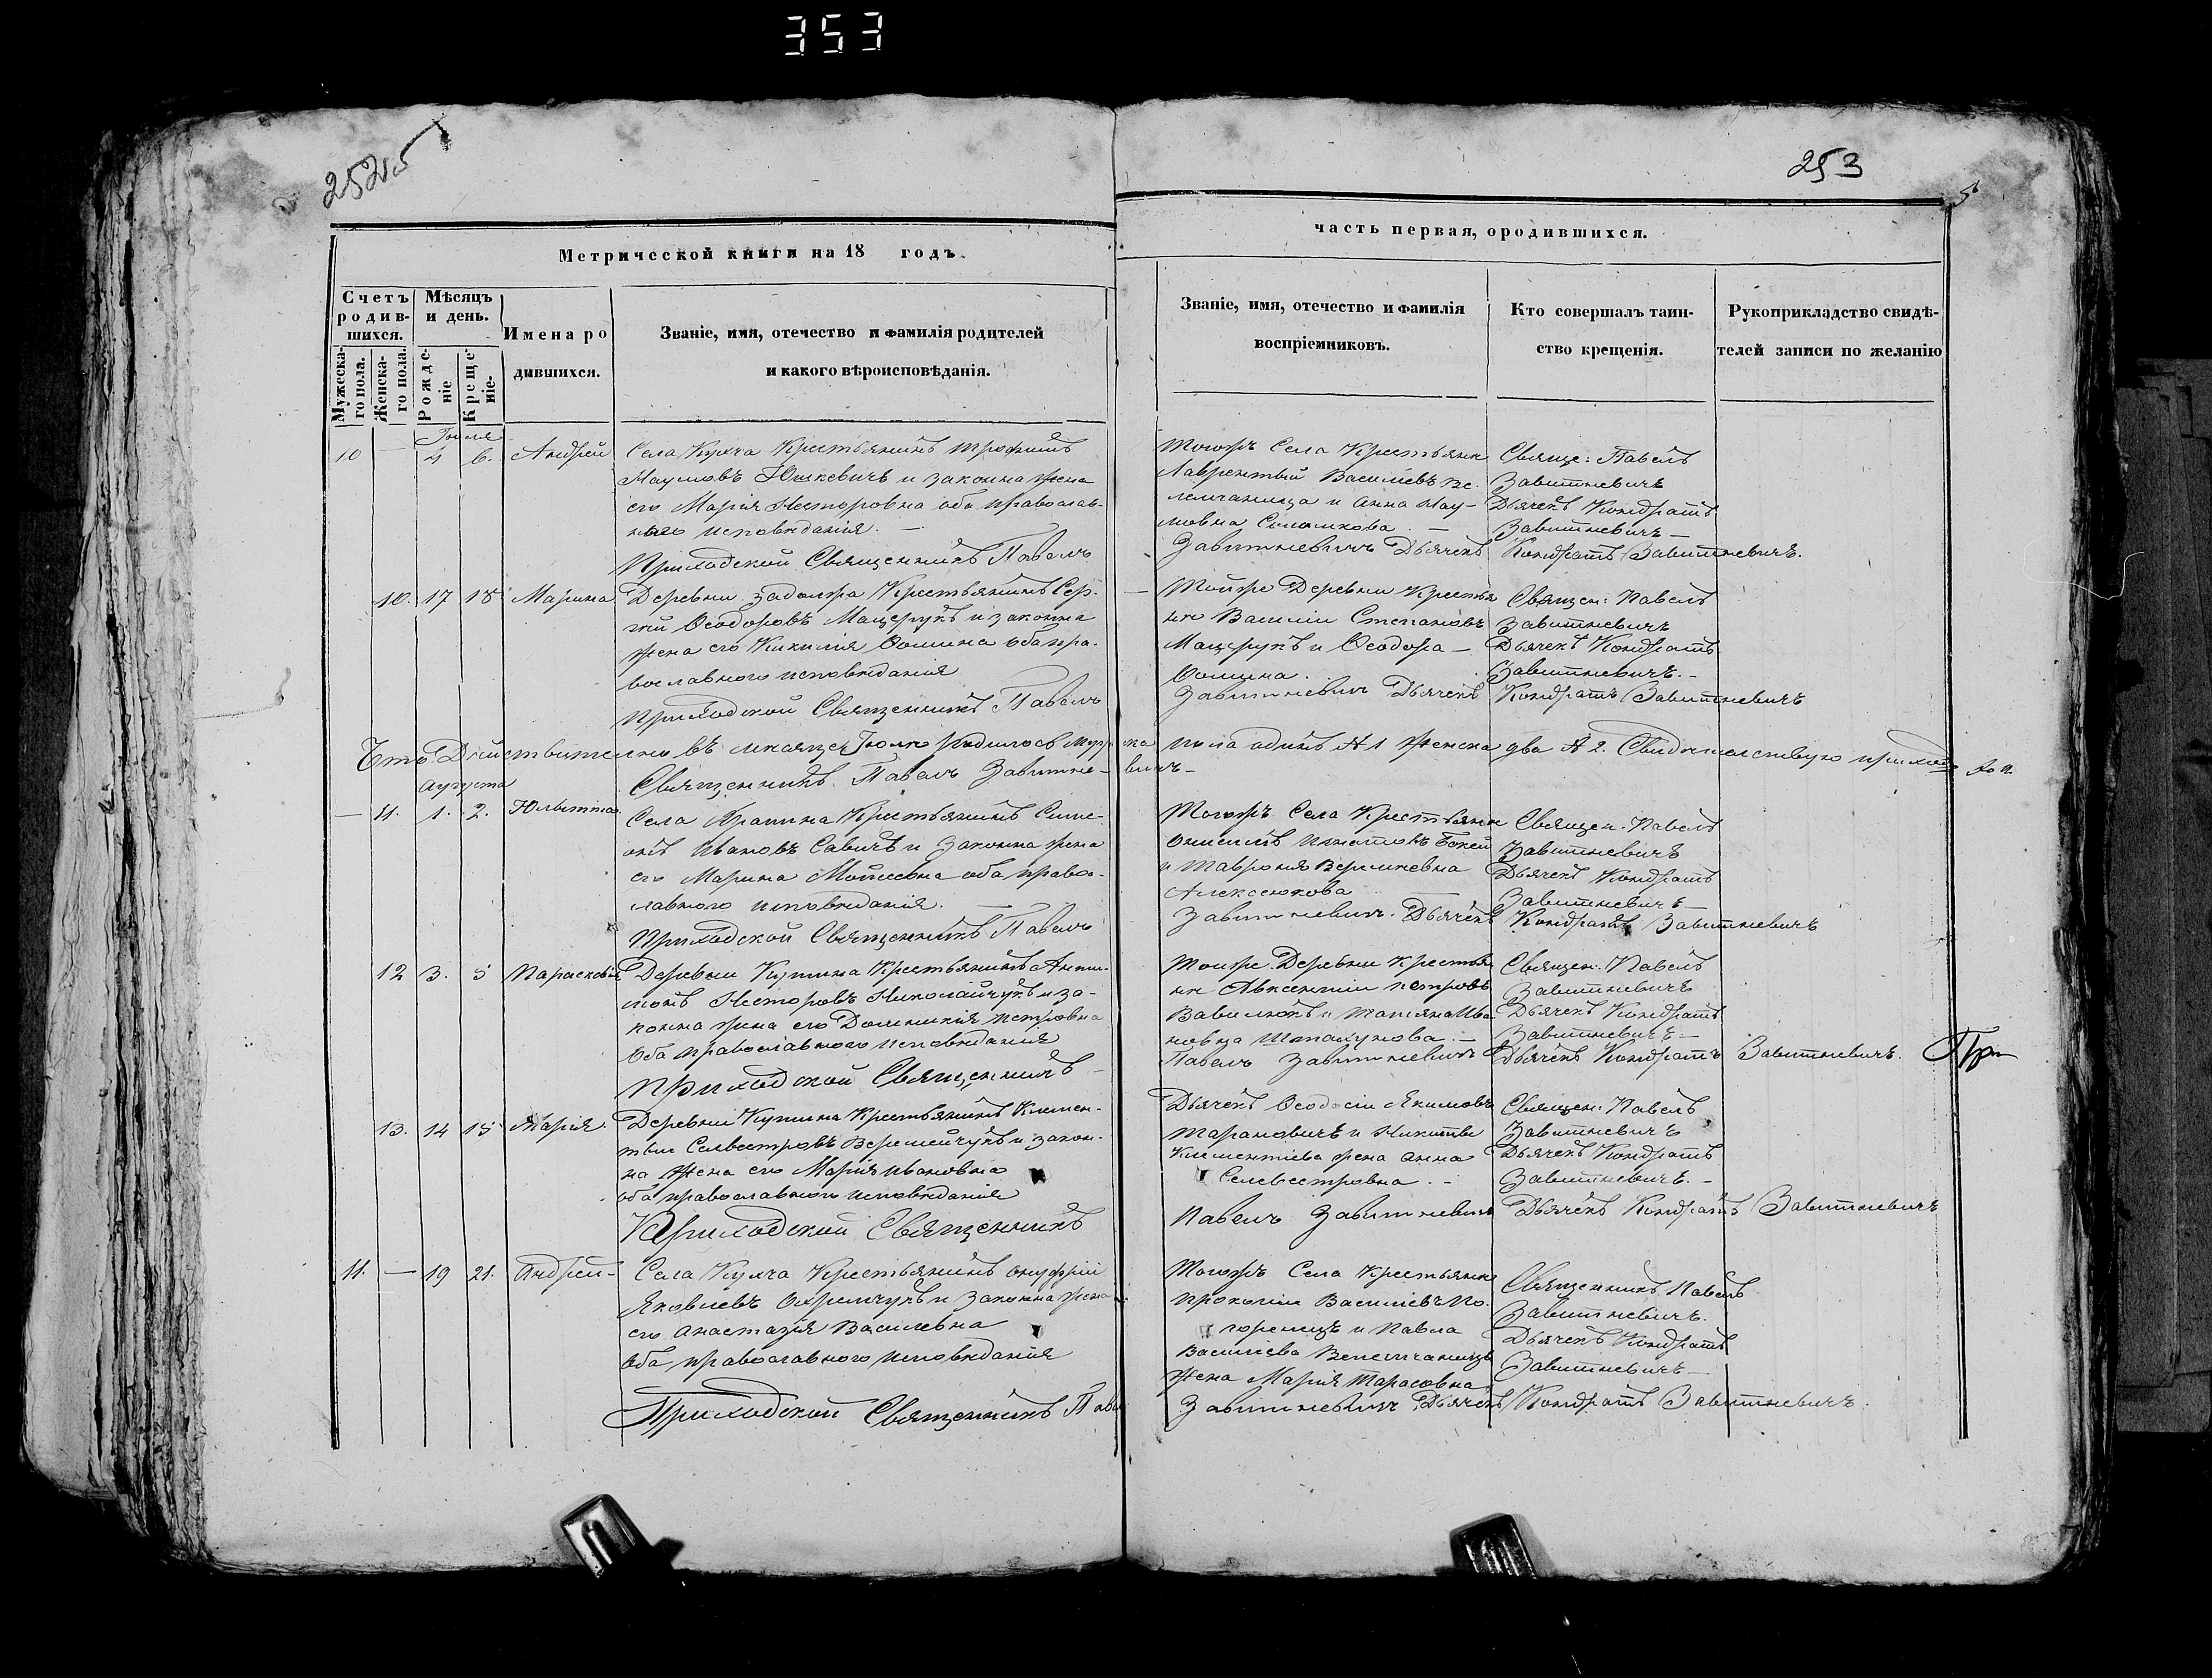 353
252об
253
5
Метрической книги на 18 годъ.
часть первая, ородившихся.
Счетъ родив-
шихся.
Мужеска-
го пола.
Женска-
го пола.
Мѣсяцъ
и день.
Рожде-
ніе
Креще-
ніе.
Имена ро
дившихся.
Званіе, имя, отечество и фамилія родителей
и какого вѣроисповѣданія.
Званіе, имя, отечество и фамилія
воспріемниковъ.
Кто совершалъ таин-
ство крещенія.
Рукоприкладство свидѣ-
телей записи по желанію
Іюля
10 — 4 6. Андрей
Села Кухча Крестьянинъ Трофимъ
Наумовъ Юшкевичъ и законна жена
его Марія Несторовна оба православ-
наго исповѣданія. —
Приходской Священникъ Павелъ
Тогожъ Села Крестьяне
Лаврентій Василіевъ Ве-
лемчаница и Анна Нау-
мовна
Завитневичъ Дьячекъ Кондратъ Завитневичъ.
Свяще: Павелъ
Завитневичъ
Дьячекъ Кондратъ
Завитневичъ —
10. 17 18 Марина
Деревни Задолжа Крестьянинъ Сер-
гій Ѳеодоровъ Мацерукъ и законна
жена его Ѳомина оба пра-
вославного исповѣданія
Приходской Священникъ Павелъ
Тойже Деревни Крестья
не Василій Степановъ
Мацерукъ и Ѳеодора —
Ѳомина.
Завитневичъ Дьячекъ Кондратъ Завитневичъ
Священ: Павелъ
Завитневичъ
Дьячекъ Кондратъ
Завитневичъ. —
Что Дѣйствително въ мѣсяцѣ Іюлѣ родилось мужска пола одинъ № 1 женска два № 2. Свидѣтелствую приход
Священникъ Павелъ Завитневичъ —
Августа
— 11. 1. 2. Юлитта
Села Крестьянинъ Симе-
онъ Ивановъ Савичъ и законна жена
его Марина Мойсеевна оба право-
лавного исповѣданія. —
Приходской Священникъ Павелъ
Тогожъ Села Крестьяне
Онисимъ
и Тавронія
Алексюкова
Завитневичъ. Дьячекъ Кондратъ Завитневичъ
Священ. Павелъ
Завитневичъ
Дьячекъ Кондратъ
Завитневичъ —
12 3. 5 Параскевія
Деревни Кутина Крестьянинъ
Несторовъ Николайчукъ и за-
конна жена его Доминикія Петровна
оба православного исповѣданія
Приходской Священникъ
Тоиже Деревни Крестья
не Авксентій Петровъ
Вавилюкъ и Татіяна Ива
новна
Павелъ Завитневичъ Дьячекъ Кондратъ Завитневичъ.
Священ: Павелъ
Завитневичъ
Дьячекъ Кондратъ
Завитневичъ —
При
13. 14 15 Марія
Деревни Кутина Крестьянинъ Климен-
тій Селвестровъ Веремейчукъ и закон-
на жена его Марія Ивановна
оба православного исповѣданія
Приходской Священникъ
Дьячекъ Ѳеодосій Якимовъ
Тарановичъ и Никиты
Климентіева жена Анна
Селвестровна. —
Павелъ Завитневичъ Дьячекъ Кондратъ Завитневичъ
Священ: Павелъ
Завитневичъ
Дьячекъ Кондратъ
Завитневичъ. —
11. — 19 21. Андрей —
Села Кухча Крестьянинъ Онуфрій
Яковлевъ Охремчукъ и законна жена
его Анастазія Василевна
оба православного исповѣданія
Приходской Священникъ Паве
Тогожъ Села Крестьяне
Прокопій Василіевъ По-
горелецъ и Павла
Василіева Велемчаница
жена Марія Тарасовна
Завитневичъ Дьячекъ Кондратъ Завитневичъ.
Священникъ Павелъ
Завитневичъ.
Дьячекъ Кондратъ
Завитневичъ —